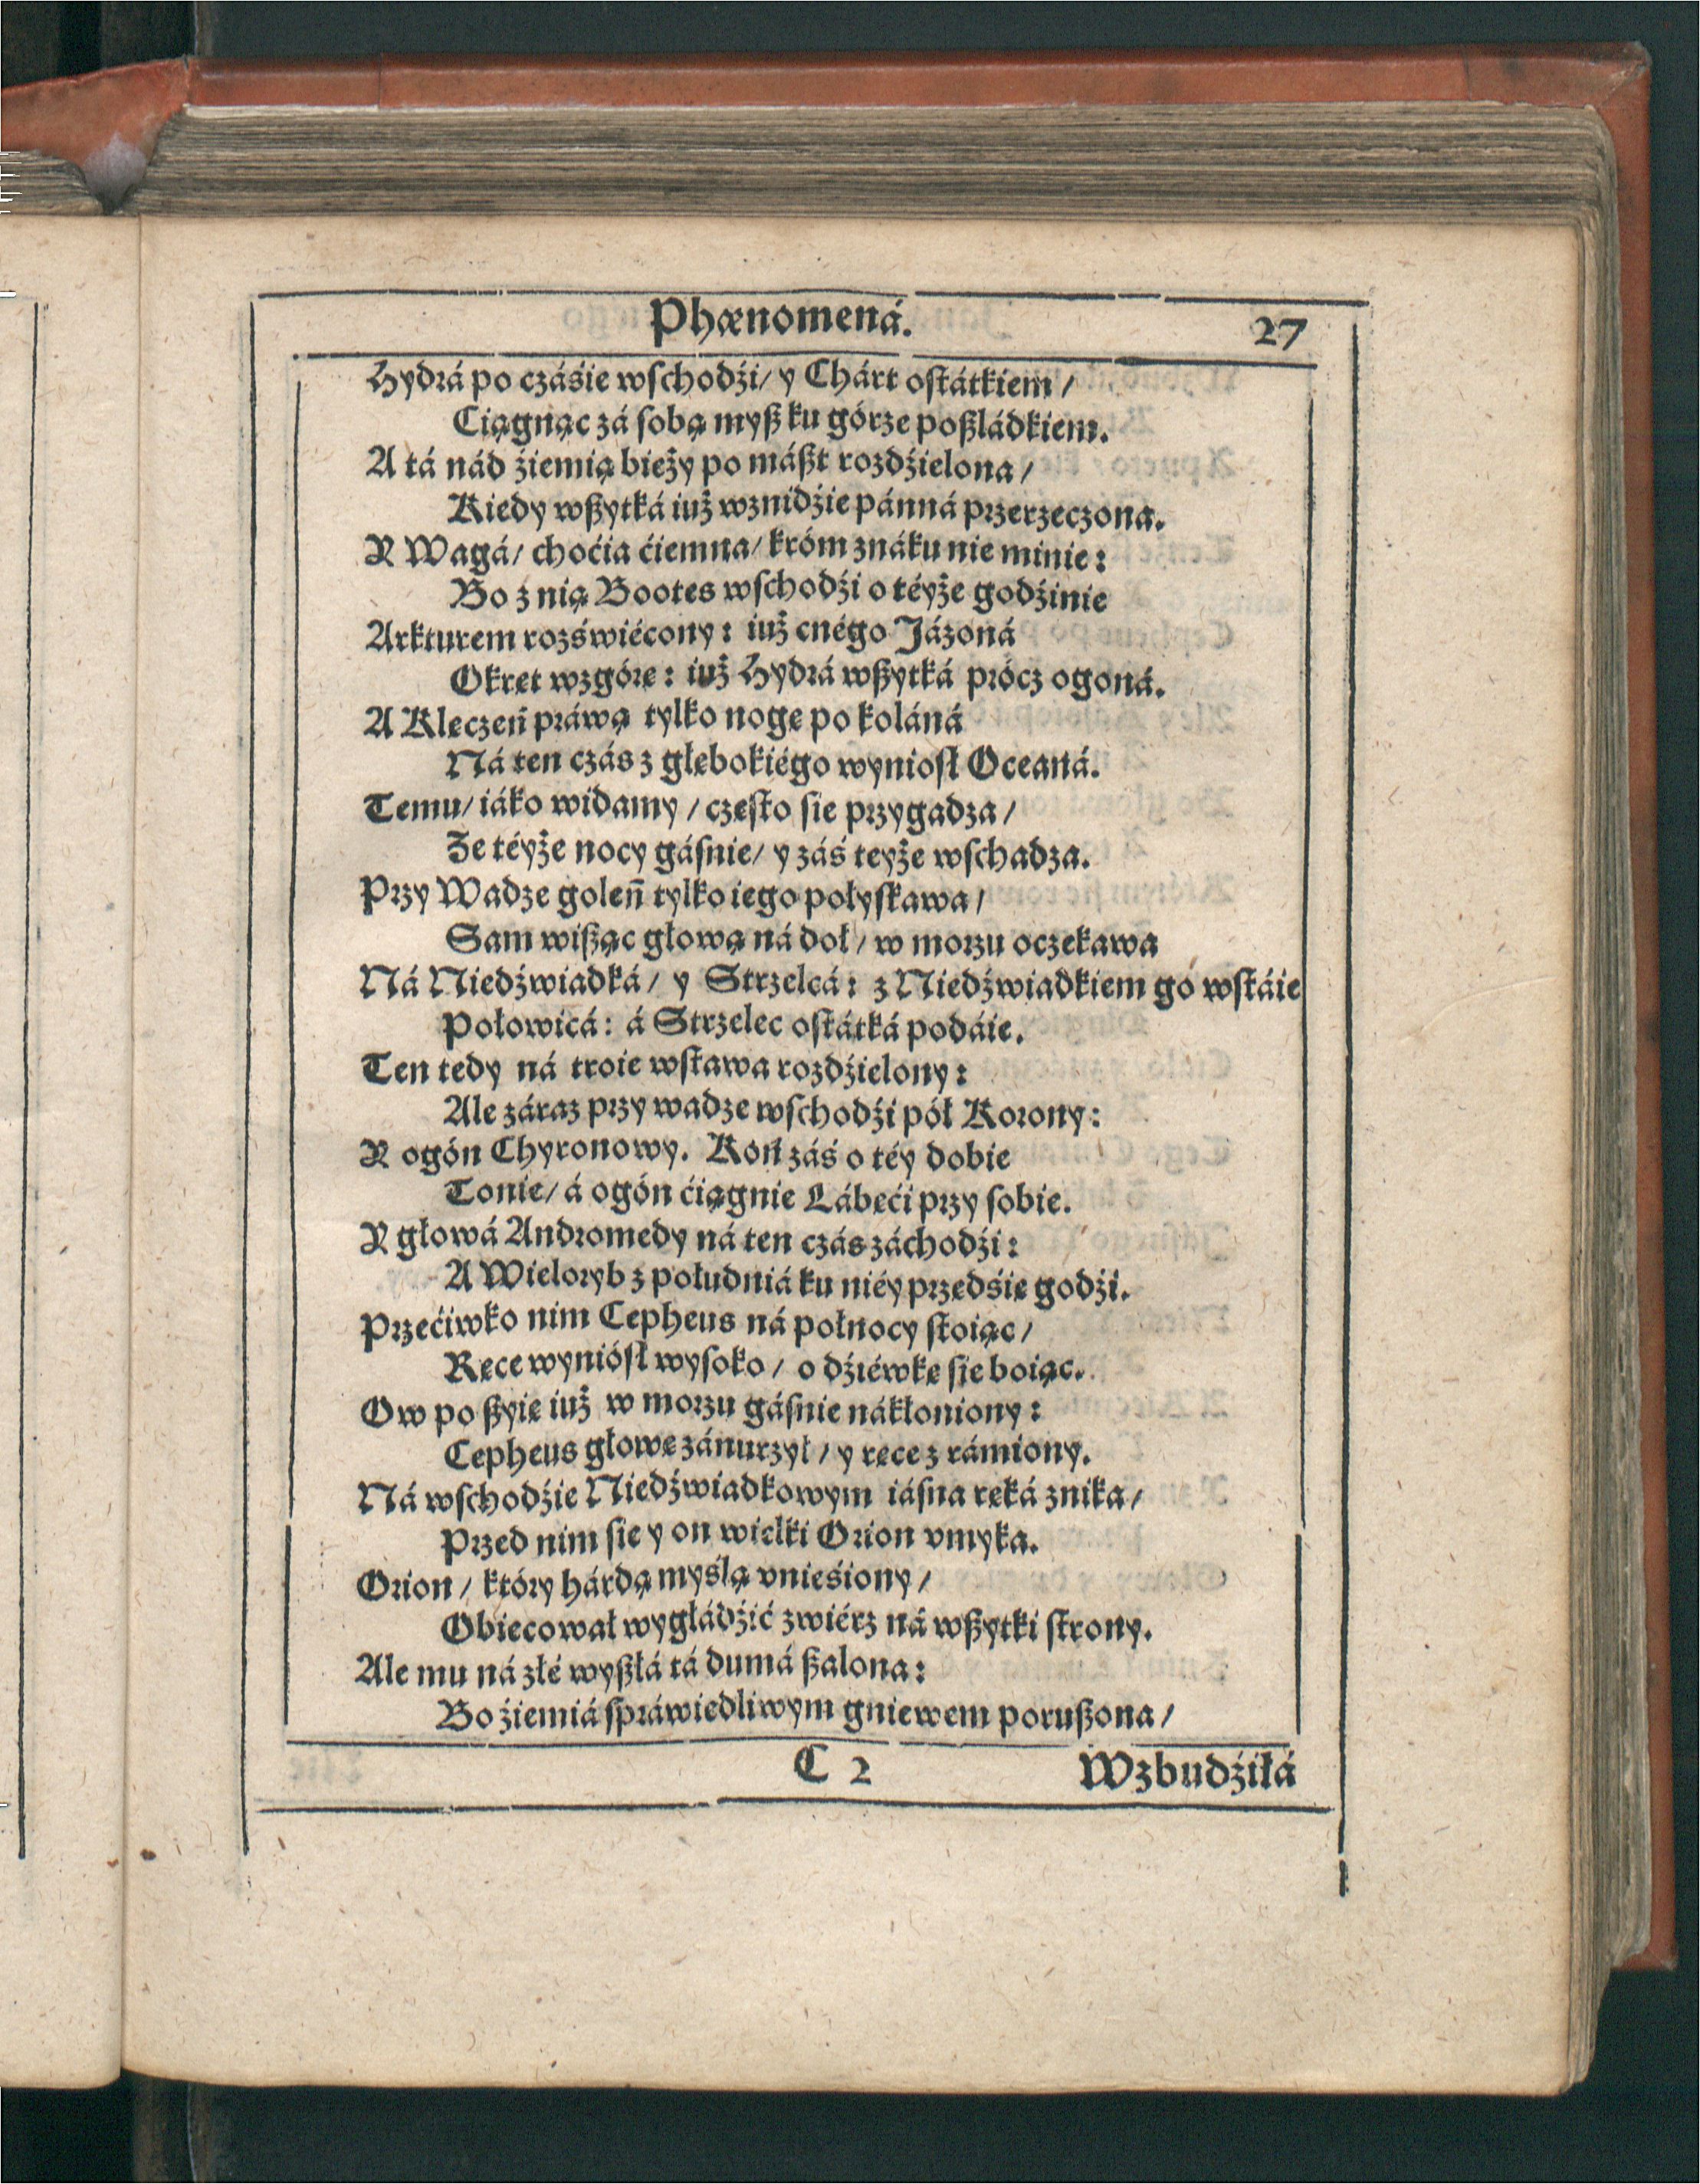 Phænomená.
27
Hydrá po czáśie wſchodźi/ y Chárt oſtátkiem/
Ciągnąc zá ſobą myß ku górze poßládkiem.
A tá nád źiemią bieży po máßt rozdźielona/
Kiedy wßytká iuż wznidźie pánná przerzeczona.
Y Wagá/ choćia ćiemna/ króm znáku nie minie:
Bo z nią Bootes wſchodźi o téyże godźinie
Arkturem rozświécony: iuż cnégo Jázoná
Okręt wzgórę: iuż Hydrá wßytká prócz ogoná.
A Klęczeń práwą tylko nogę po koláná
Ná ten czás z głębokiégo wynioſł Oceaná.
Temu/ iáko widamy/ częſto ſie przygadza/
Że téyże nocy gáſnie/ y záś teyże wſchadza.
Przy Wadze goleń tylko iego połyſkawa/
Sam wißąc głową ná doł/ w morzu oczekawa
Ná Niedźwiadká/ y Strzelcá: z Niedźwiadkiem go wſtáie
Połowicá: á Strzelec oſtátká podáie.
Ten tedy ná troie wſtawa rozdźielony:
Ale záraz przy wadze wſchodźi pół Korony:
Y ogón Chyronowy. Koń záś o téy dobie
Tonie/ á ogón ćiągnie Łábęći przy ſobie.
Y głowá Andromedy ná ten czás záchodźi:
A Wieloryb z południá ku niéy przedśię godźi.
Przećiwko nim Cepheus ná połnocy ſtoiąc/
Ręce wyniósł wyſoko/ o dźiéwkę ſie boiąc.
Ow po ßyię iuż w morzu gáſnie nákłoniony:
Cepheus głowę zánurzył/ y ręce z rámiony.
Ná wſchodźie Niedźwiadkowym iáſna ręká znika/
Przed nim ſie y on wielki Orion vmyka.
Orion/ który hárdą myślą vnieśiony/
Obiecował wygłádźić zwiérz ná wßytki ſtrony.
Ale mu ná złé wyßłá tá dumá ßalona:
Bo źiemiá ſpráwiedliwym gniewem porußona/
C 2
Wzbudźiłá